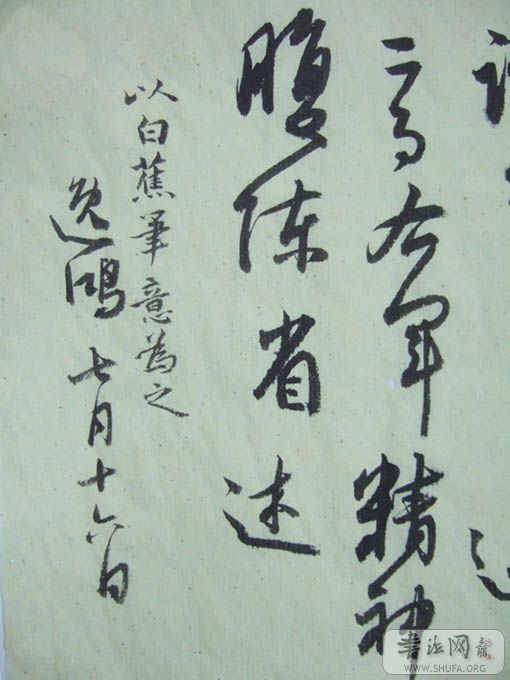 右軍精神
腹陳省述
以白蕉筆意為之
逸鴻 七月十六日
書法网
WWW.SHUFA.ORG